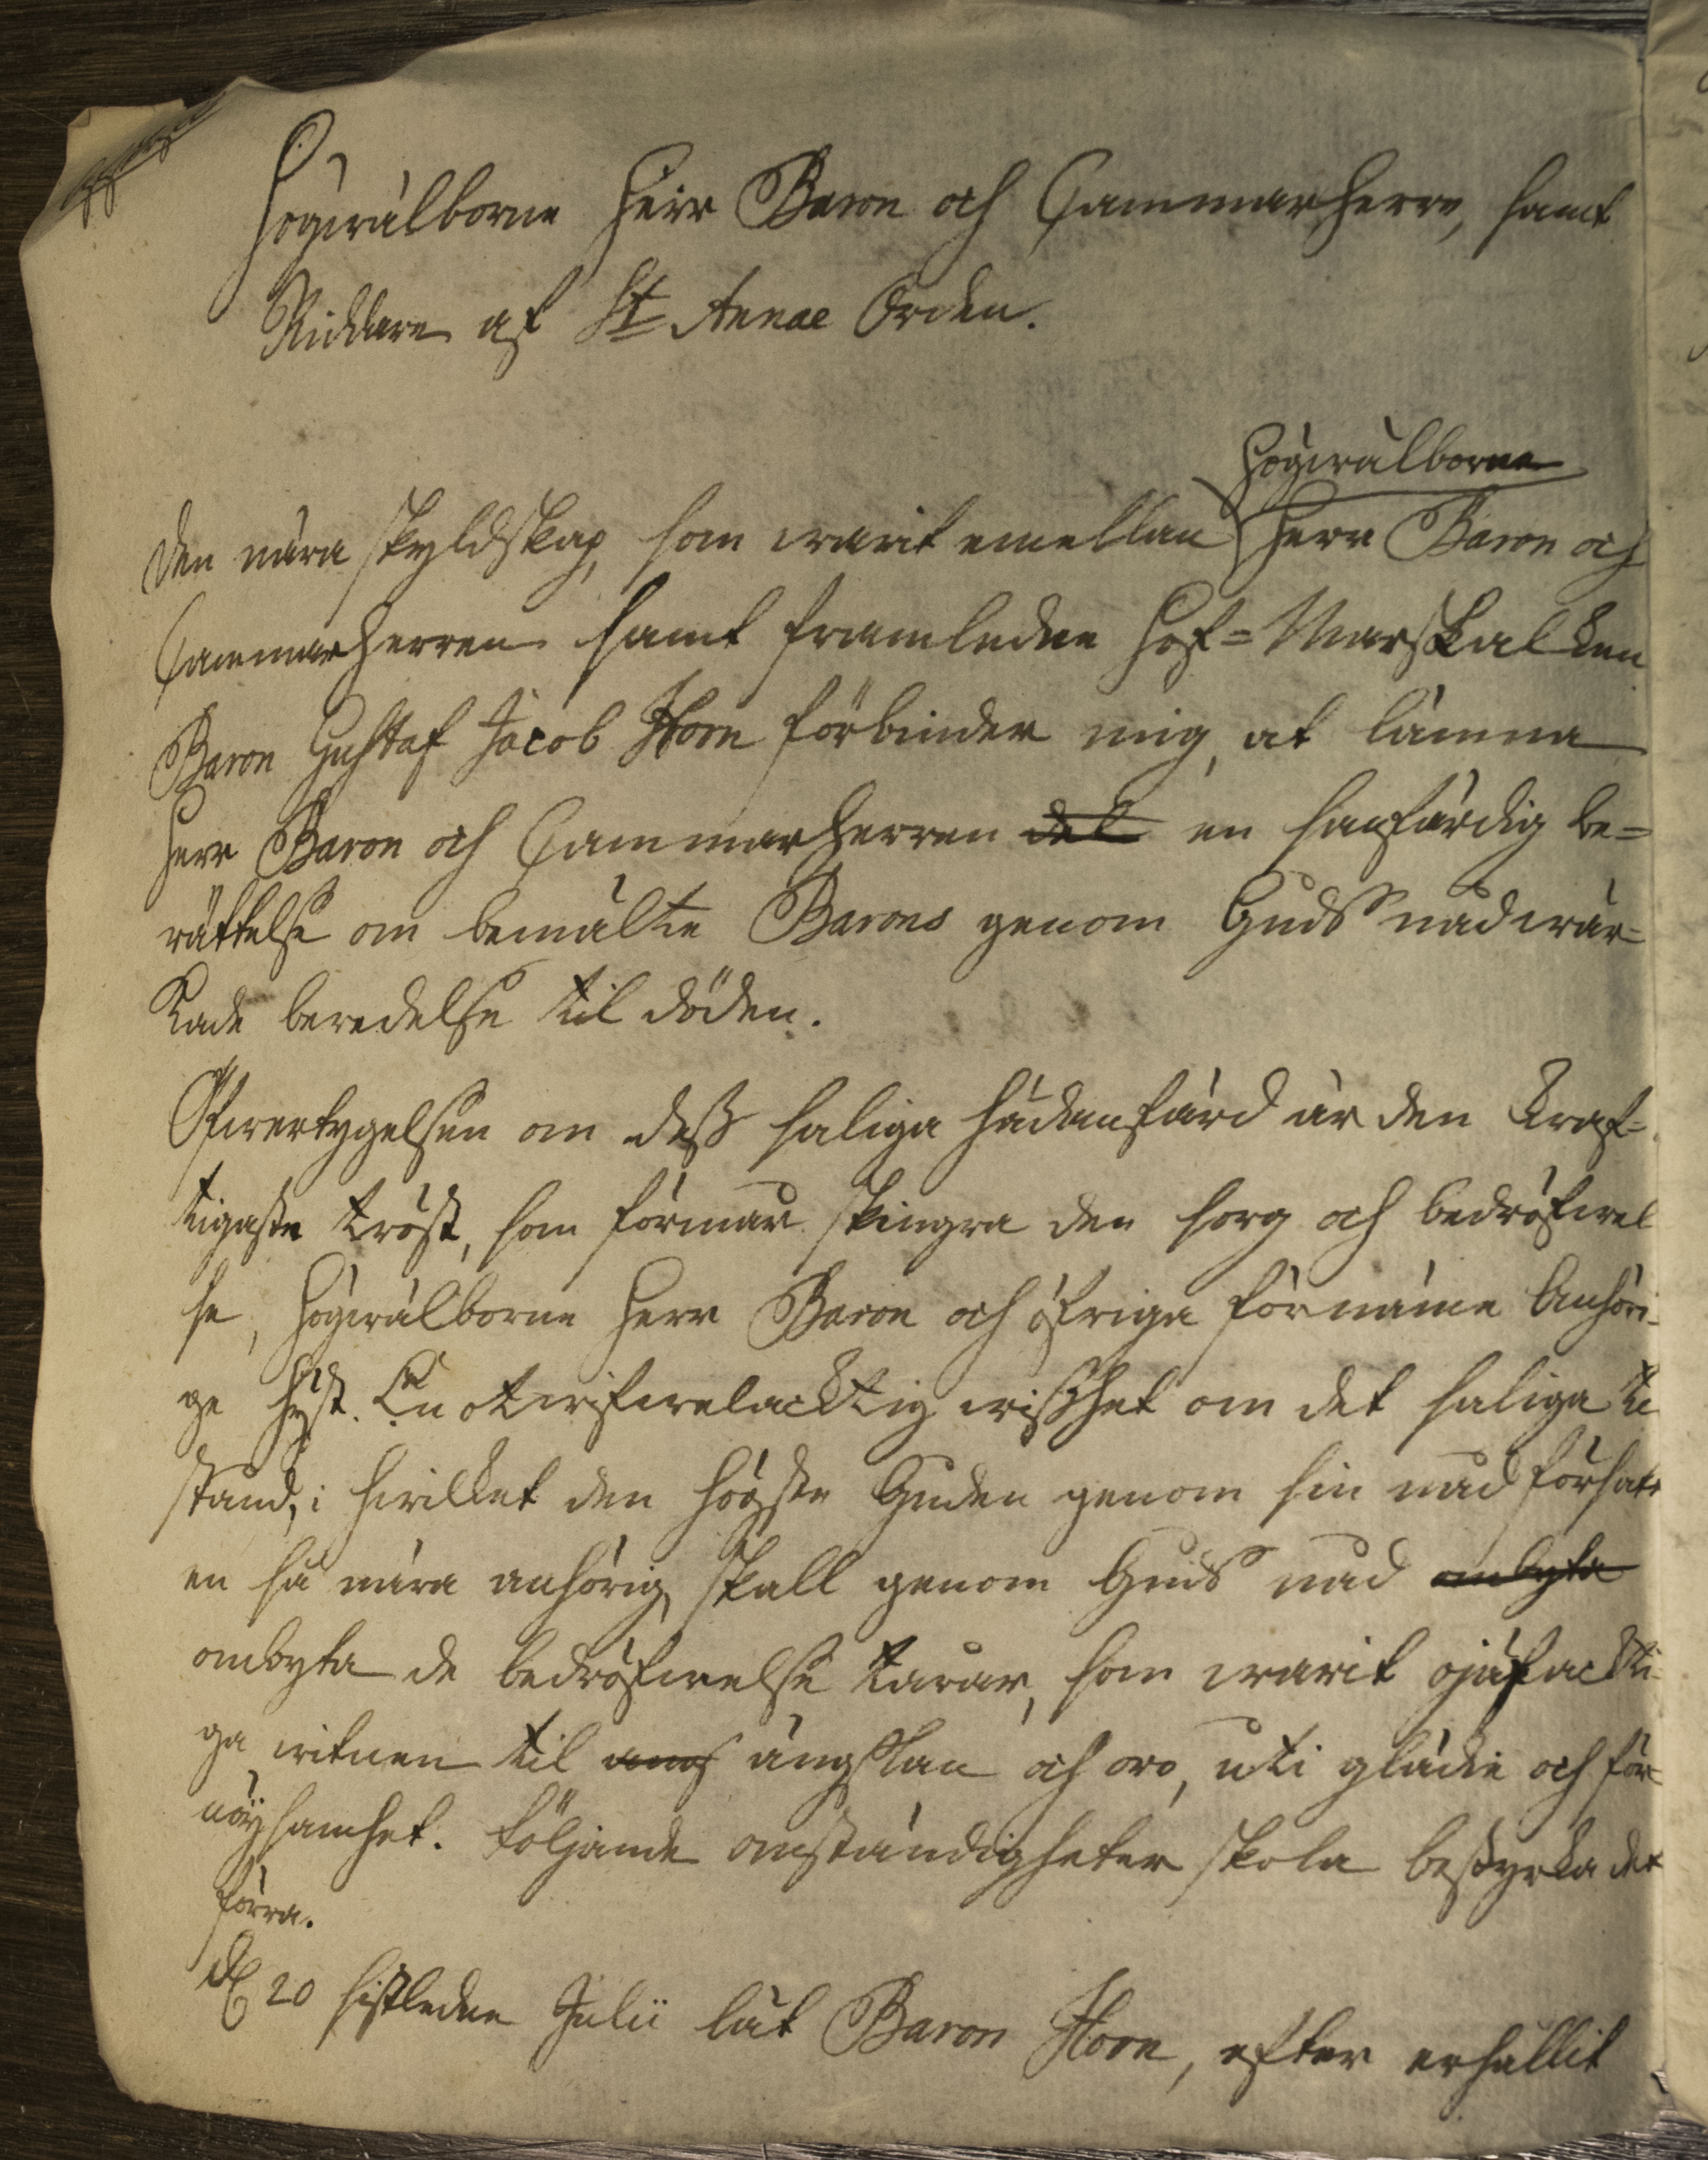 Högwälborne Herr Baron och Cammarherre, samt
Riddare af St Annae Orden.
Högwälborne
Den nära skyldskap, som warit emellan Herr Baron och
Cammarherren samt framledne Hof=Marskalken
Baron Gustaf Jacob Horn förbinder mig, at lämna
Herr Baron och Cammarherren del en sanfärdig be=
rättelse om bemälte Barons genom Guds nåd wär=
kade beredelse til döden.
Öfwertygelsen om dess saliga hädanfärd är den kraf=
tigaste tröst, som förmår skingra den sorg och bedröfwel
se, Högwälborne Herr Baron och öfriga förnäme Anhöri=
ge hyst. En otwifwelacktig wisshet om det saliga til
stånd, i hwilket den högste Guden genom sin nåd försatt
en så nära anhörig, skall genom Guds nåd ombyta
ombyta de bedröfwelse tårar, som warit ojäfackti=
ga witnen til ängslan och oro, uti glädie och för
nöysamhet. Följande omständigheter skola bestyrka det
förra.
20 sistledne Julii lät Baron Horn, efter erhållit